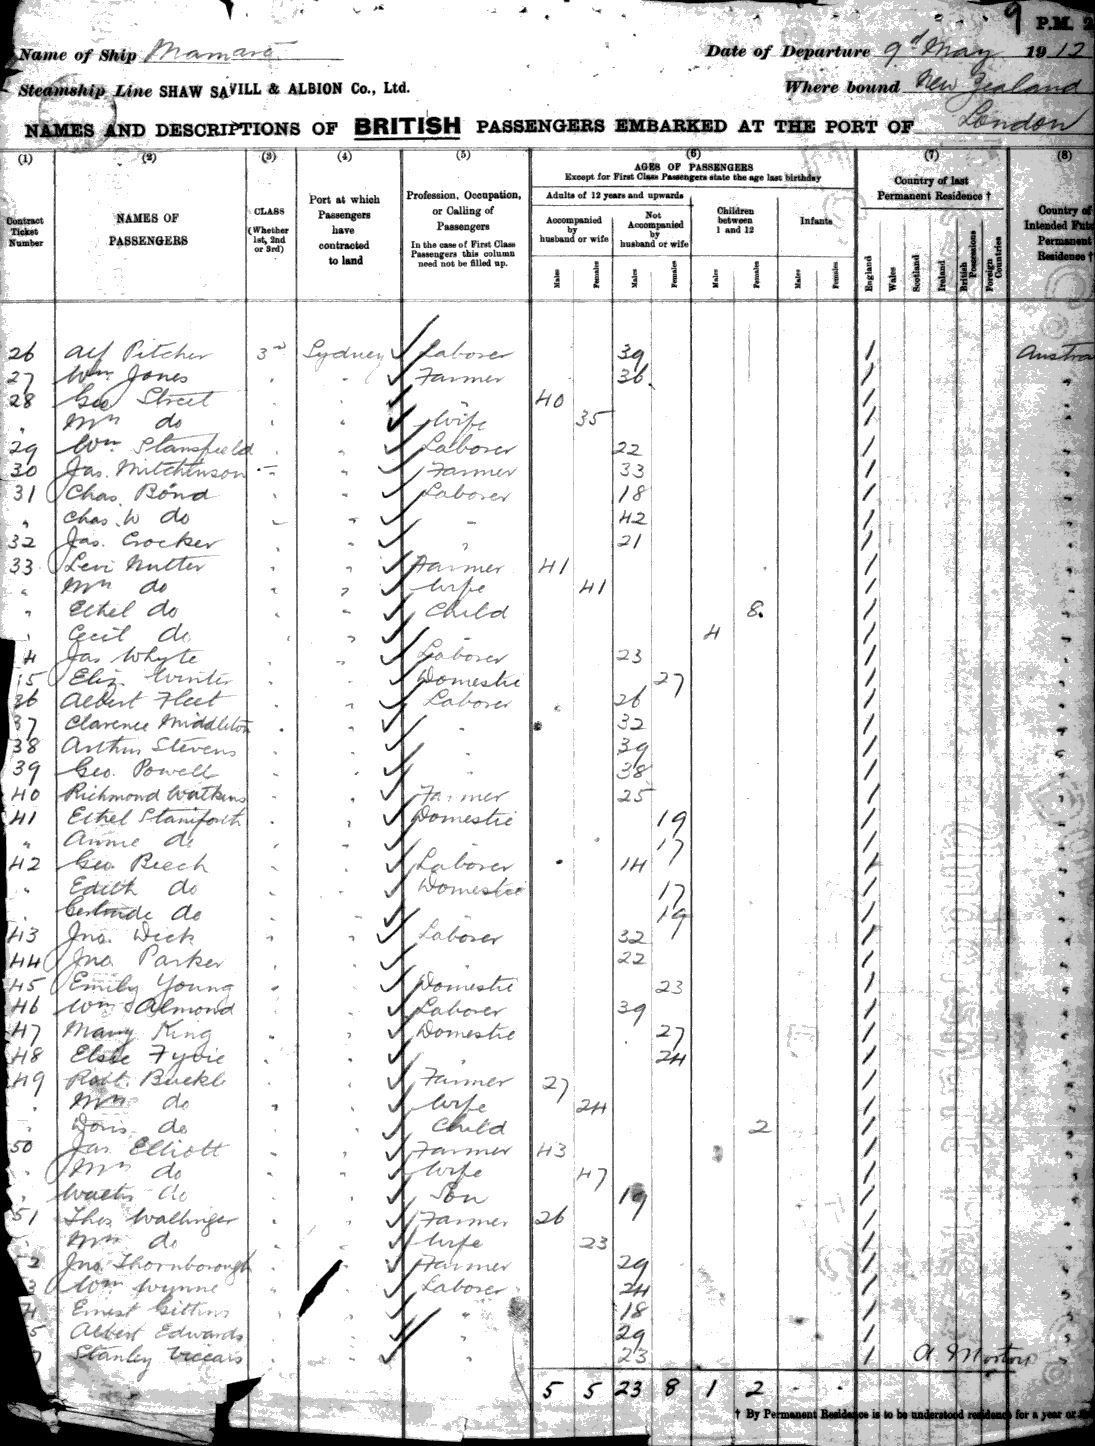 9 P.M. 2
Name of Ship Mamari Date of Departure 9th May 1912
Steamship Line SHAW SAVILL & ALBION Co., Ltd. Where bound New Zealand
NAMES AND DESCRIPTIONS OF BRITISH PASSENGERS EMBARKED AT THE PORT OF London
(1) (2) (3) (4) (5) (6) (7) (8)
Contract Ticket Number
NAMES OF PASSENGERS
CLASS (Whether 1st, 2nd or 3rd)
Port at which Passengers have contracted to land
Profession, Occupation, or Calling of Passengers
In the case of First Class Passengers this column need not be filled up.
AGES OF PASSENGERS
Except for First Class Passengers state the age last birthday
Adults of 12 years and upwards
Accompanied by husband or wife
Not Accompanied by husband or wife
Children between 1 and 12
Infants
Males Females Males Females Males Females Males Females
Country of last Permanent Residence †
England Wales Scotland Ireland British Possessions Foreign Countries
Country of Intended Futu Permanent Residence †
26 Alf Pitcher 3rd Sydney Laborer 39 Austra
27 Wm Jones " " Farmer 36 "
28 Geo Street " " " 40 "
" Mrs do " " Wife 35 "
29 Wm Stansfield " " Laborer 22 "
30 Jas. Mitchinson " " Farmer 33 "
31 Chas Bond " " Laborer 18 "
" Chas. W do " " " 42 "
32 Jas. Crocker " " " 21 "
33 Levi Nutter " " Farmer 41 "
" Mrs do " " Wife 41 "
" Ethel do " " Child 8 "
" Cecil do " " " 4 "
4 Jas Whyte " " Laborer 23 "
35 Eliz. Winter " " Domestic 27 "
36 Albert Fleet " " Laborer 26 "
37 Clarence Middleton " " " 32 "
38 Arthur Stevens " " " 39 "
39 Geo. Powell " " " 38 "
40 Richmond Watkins " " Farmer 25 "
41 Ethel Staniforth " " Domestic 19 "
" Annie do " " " 17 "
42 Geo Beech " " Laborer 14 "
" Edith do " " Domestic 17 "
" Gertrude do " " " 19 "
43 Jno. Dick " " Laborer 32 "
44 Jno Parker " " " 22 "
45 Emily Young " " Domestic 23 "
46 Wm Almond " " Laborer 39 "
47 Mary King " " Domestic 27 "
48 Elsie Fyvie " " " 24 "
49 Robt. Buckle " " Farmer 27 "
" Mrs do " " Wife 24 "
" Doris do " " Child 2 "
50 Jas Elliott " " Farmer 43 "
" Mrs do " " Wife 47 "
" Walter do " " Son 19 "
51 Thos Wallinger " " Farmer 26 "
" Mrs do " " Wife 23 "
2 Jno. Thornborough " " Farmer 29 "
3 Wm Wynne " " Laborer 24 "
4 Ernest Gittins " " " 18 "
5 Albert Edwards " " " 29 "
Stanley Viccars " " " 23 "
A Morton
5 5 23 8 1 2 - -
† By Permanent Residence is to be understood residence for a year or